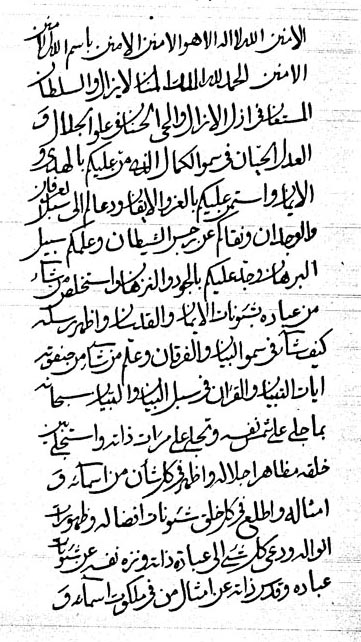 الامنين الله لا اله الا هو الامنين الامنين باسم الله الامنين
الامنين الحمد لله الملك المنان لا يزال والسلطان
المستعان في ازل الازال والحي الحنان في علو الجلال و
العدل الحبان في سمو الكمال الذي من عليكم بالهدى و
الايمان واستمن عليكم بالعز والايقان ودعاكم الى سبيل العرفان
والوجدان ونقاكم عن رجس الشيطان وعلمكم سبيل
البرهان وجد عليكم بالجود والنزهان واستخلص من شاء
من عباده بشئونات الايمان و واظهر برسله
كيف شاء في سمو البيان والفرقان وعلم من شاء من
ايات التبيان والقران في سبل البيان و التبيان سبحانه
بما جلى على نفسه وتجلى على مرات ذاته واستجلى بين
خلقه مظاهر اجلاله واظهر في كل شان من اسمائه و
امثاله واطلع في كل خلق شئونات افضاله وظهورات
انواله ودعى كل شئ الى عبادة ذاته ونزه نفسه عن شئون
عباده وقدس ذاته عن امثال من في ملكوت اسمائه و